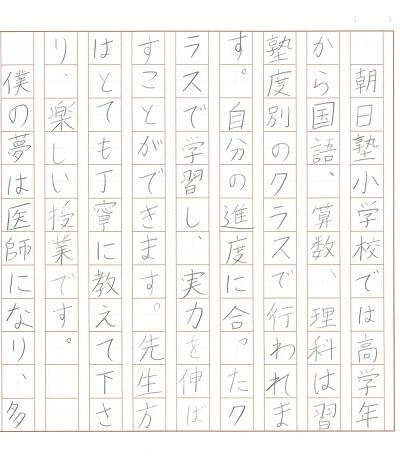 朝日塾小学校では高学年
から国語、算数、理科は習
塾度別のクラスで行われま
す。自分の進度に合ったク
ラスで学習し、実力を伸ば
すことができます。先生方
はとても丁寧に教えて下さ
り、楽しい授業です。
僕の夢は医師になり、多